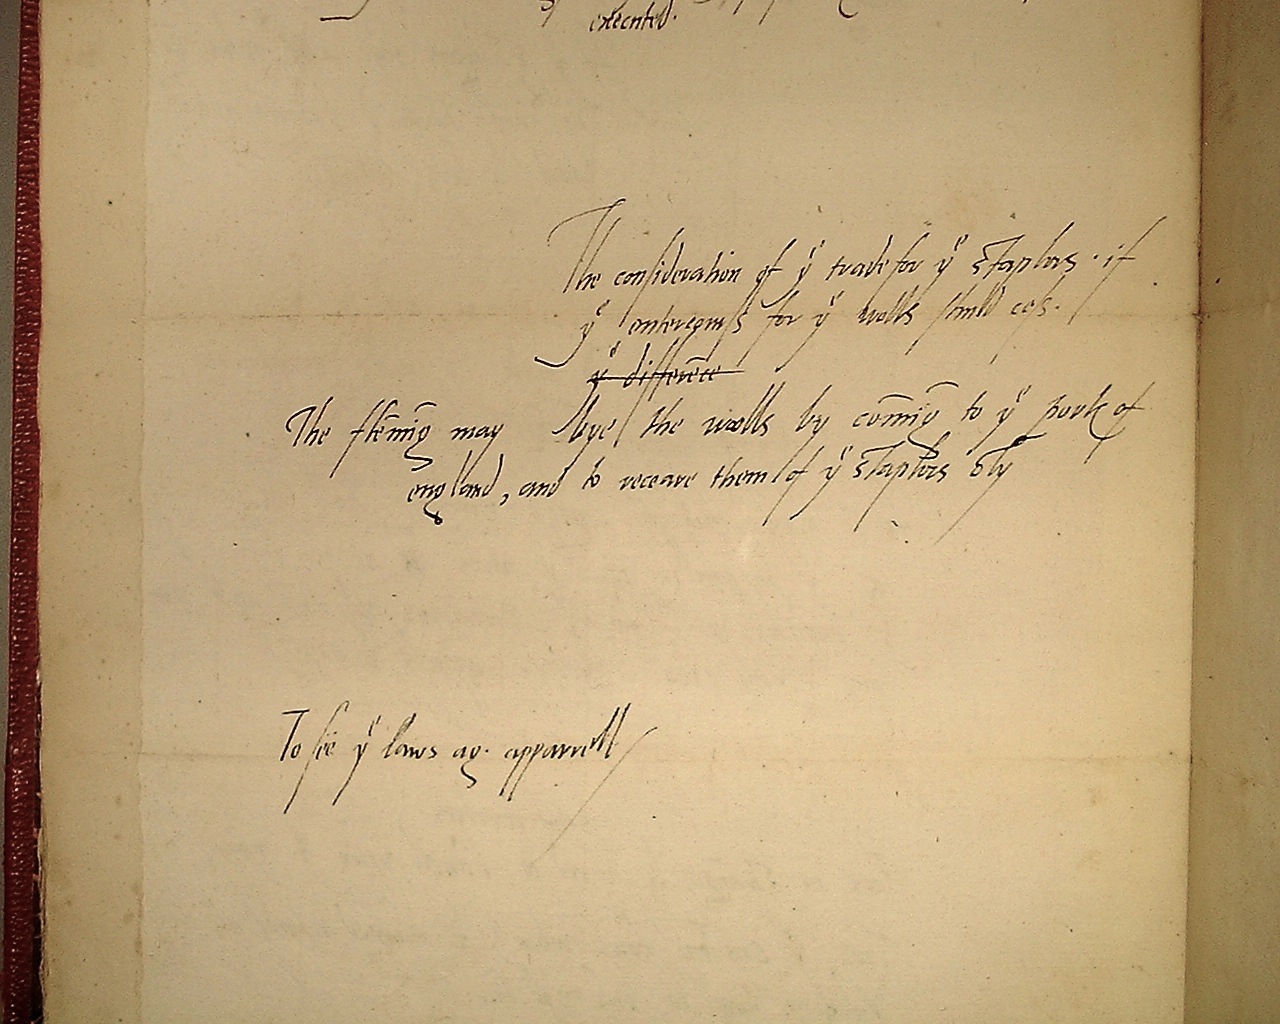 executed.
The consideration of yͤ trade for yͤ staplers . if
yͤ entercourss for yͤ wolls shuld cess.
yͤ differēce
The flēmīg may bye the woolls by cōmīg to yͤ ports of
england, and to receave them of yͤ staplers ōly
To see yͤ laws ag. apparrell